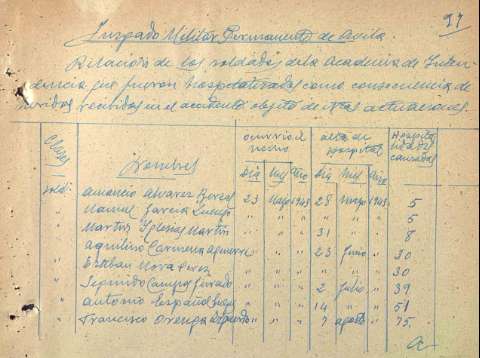 97
Juzgado Militar Permanente de Avila.
Relación de los soldados de la Academia de Inten-
dencia que fueron hospitalizados como consecuencia de
heridas recibidas en el accidente objeto de estas actuaciones.
Clases Nombres ocurrió el hecho alta del Hospital Hospita- lidades causadas
Dia Mes Año Dia Mes Año
Sold. Amancio Alvarez 23 Mayo 1943 28 Mayo 1943 5
" Manuel Garcia " " " " " " 5
" Martin Iglesias Martin " " " 31 " " 8
" Aquilino Carmena " " " 23 Junio " 30
" Esteban Mora Perez " " " " " " 30
" Segundo Campo " " " 2 Julio " 39
" Antonio Español " " " 14 " " 51
" Francisco Orenga " " " 7 agosto " 75.